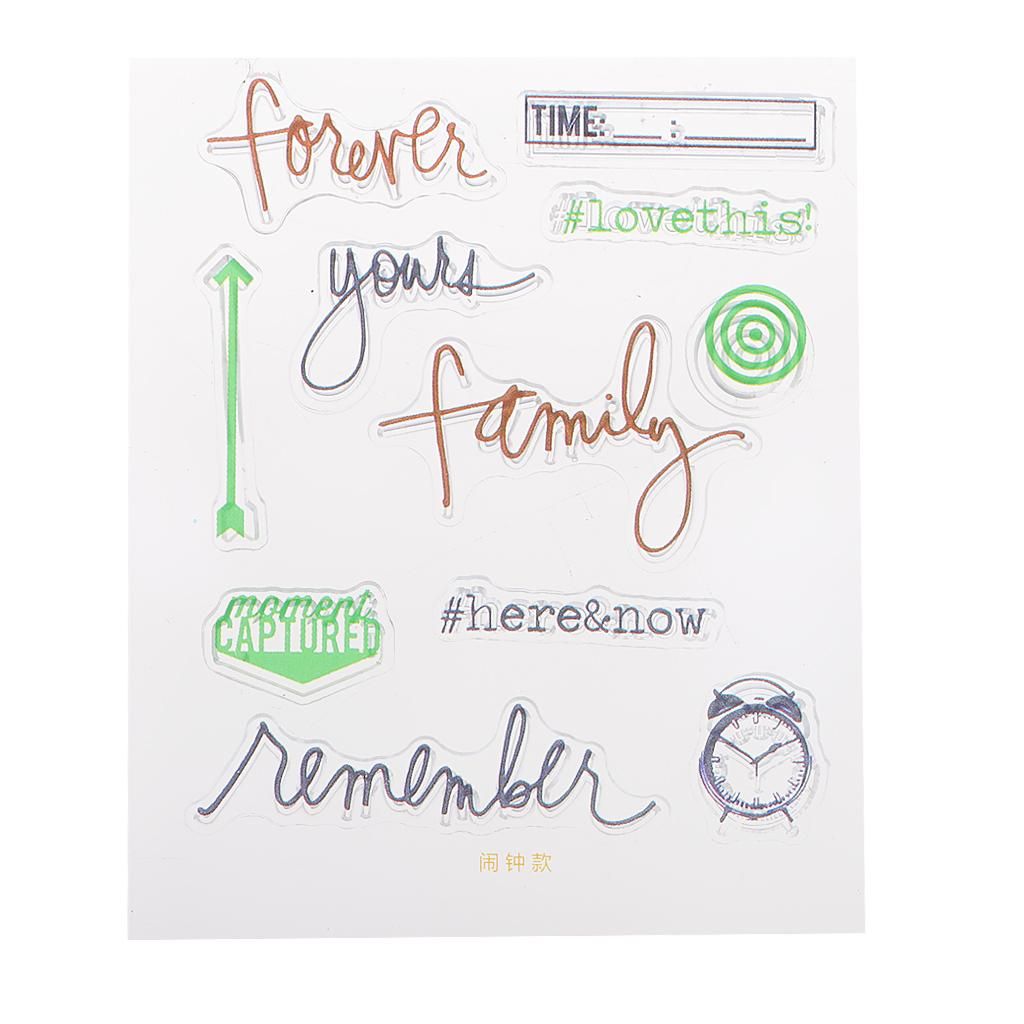 forever
TIME: ___ : ______
#lovethis!
yours
family
moment
CAPTURED
#here&now
remember
闹钟款